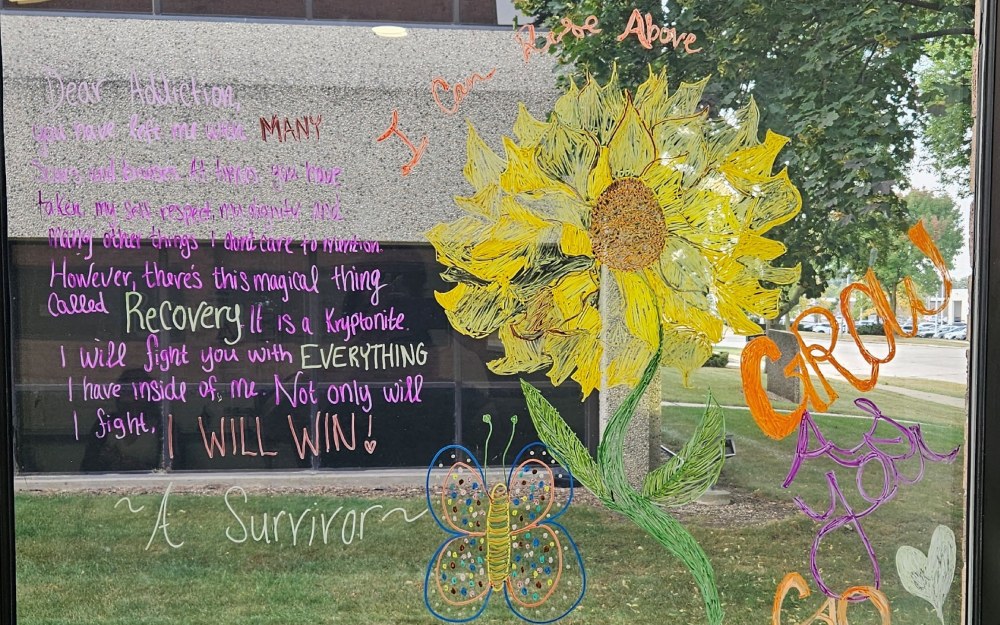 Dear Addiction,
you have left me with MANY
Scars and bruises. At times, you have
taken my self respect, my dignity, and
many other things I dont care to mention.
However, there's this magical thing
called Recovery It is a Kryptonite.
I will fight you with EVERYTHING
I have inside of me. Not only will
I fight, I WILL WIN!
~A Survivor~
I Can Above
GROW!
you